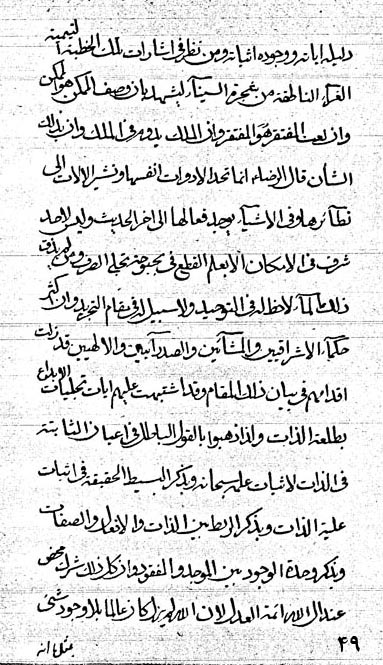 دليله اياته و وجوده اثباته و من نظر فى اشارات تلك الخطبة اليتيمية
الغراء الناطقة من شجرة السيناء ليشهد بان وصف الممكن هو الممكن
و ان نعت المفتقر هو المفتقر و ان الملك يدور فى الملك و ان بذلك
الشأن قال الرضاء انما تحد الادوات انفسها و تشير الالات الى
نظائرها و فى الاشياء يوجد فعالها الى اخر الحديث و ليس لاحد
شرف فى الامكان الا بعلم القطع فى بحبوحة تجلى الصرف و من لم يذق
ذلك الماء لا حظ له فى التوحيد و لا سبيل له فى مقام التجريد و ان كثر
حكماء الاشراقيين و المشائين و الصدرائيين و الالهيين قد زلت
اقدامهم فى بيان ذلك المقام و قد اشتبهت عليهم ايات تجليات الابداع
بطلعة الذات و لذا ذهبوا بالقول الباطل فى اعيان الثابتة
فى الذات لاثبات علمه سبحانه و بذكر البسيط الحقيقة فى اثبات
علية الذات و بذكر الربط بين الذات و الافعال و الصفات
و بذكر وحدة الوجود بين الموجد و المفقود و ان كل ذلك شرك محض
عند ال الله ائمة العدل لان الله لم يزل كان عالما بلا وجود شئ
بمثل ما انه
٤٩